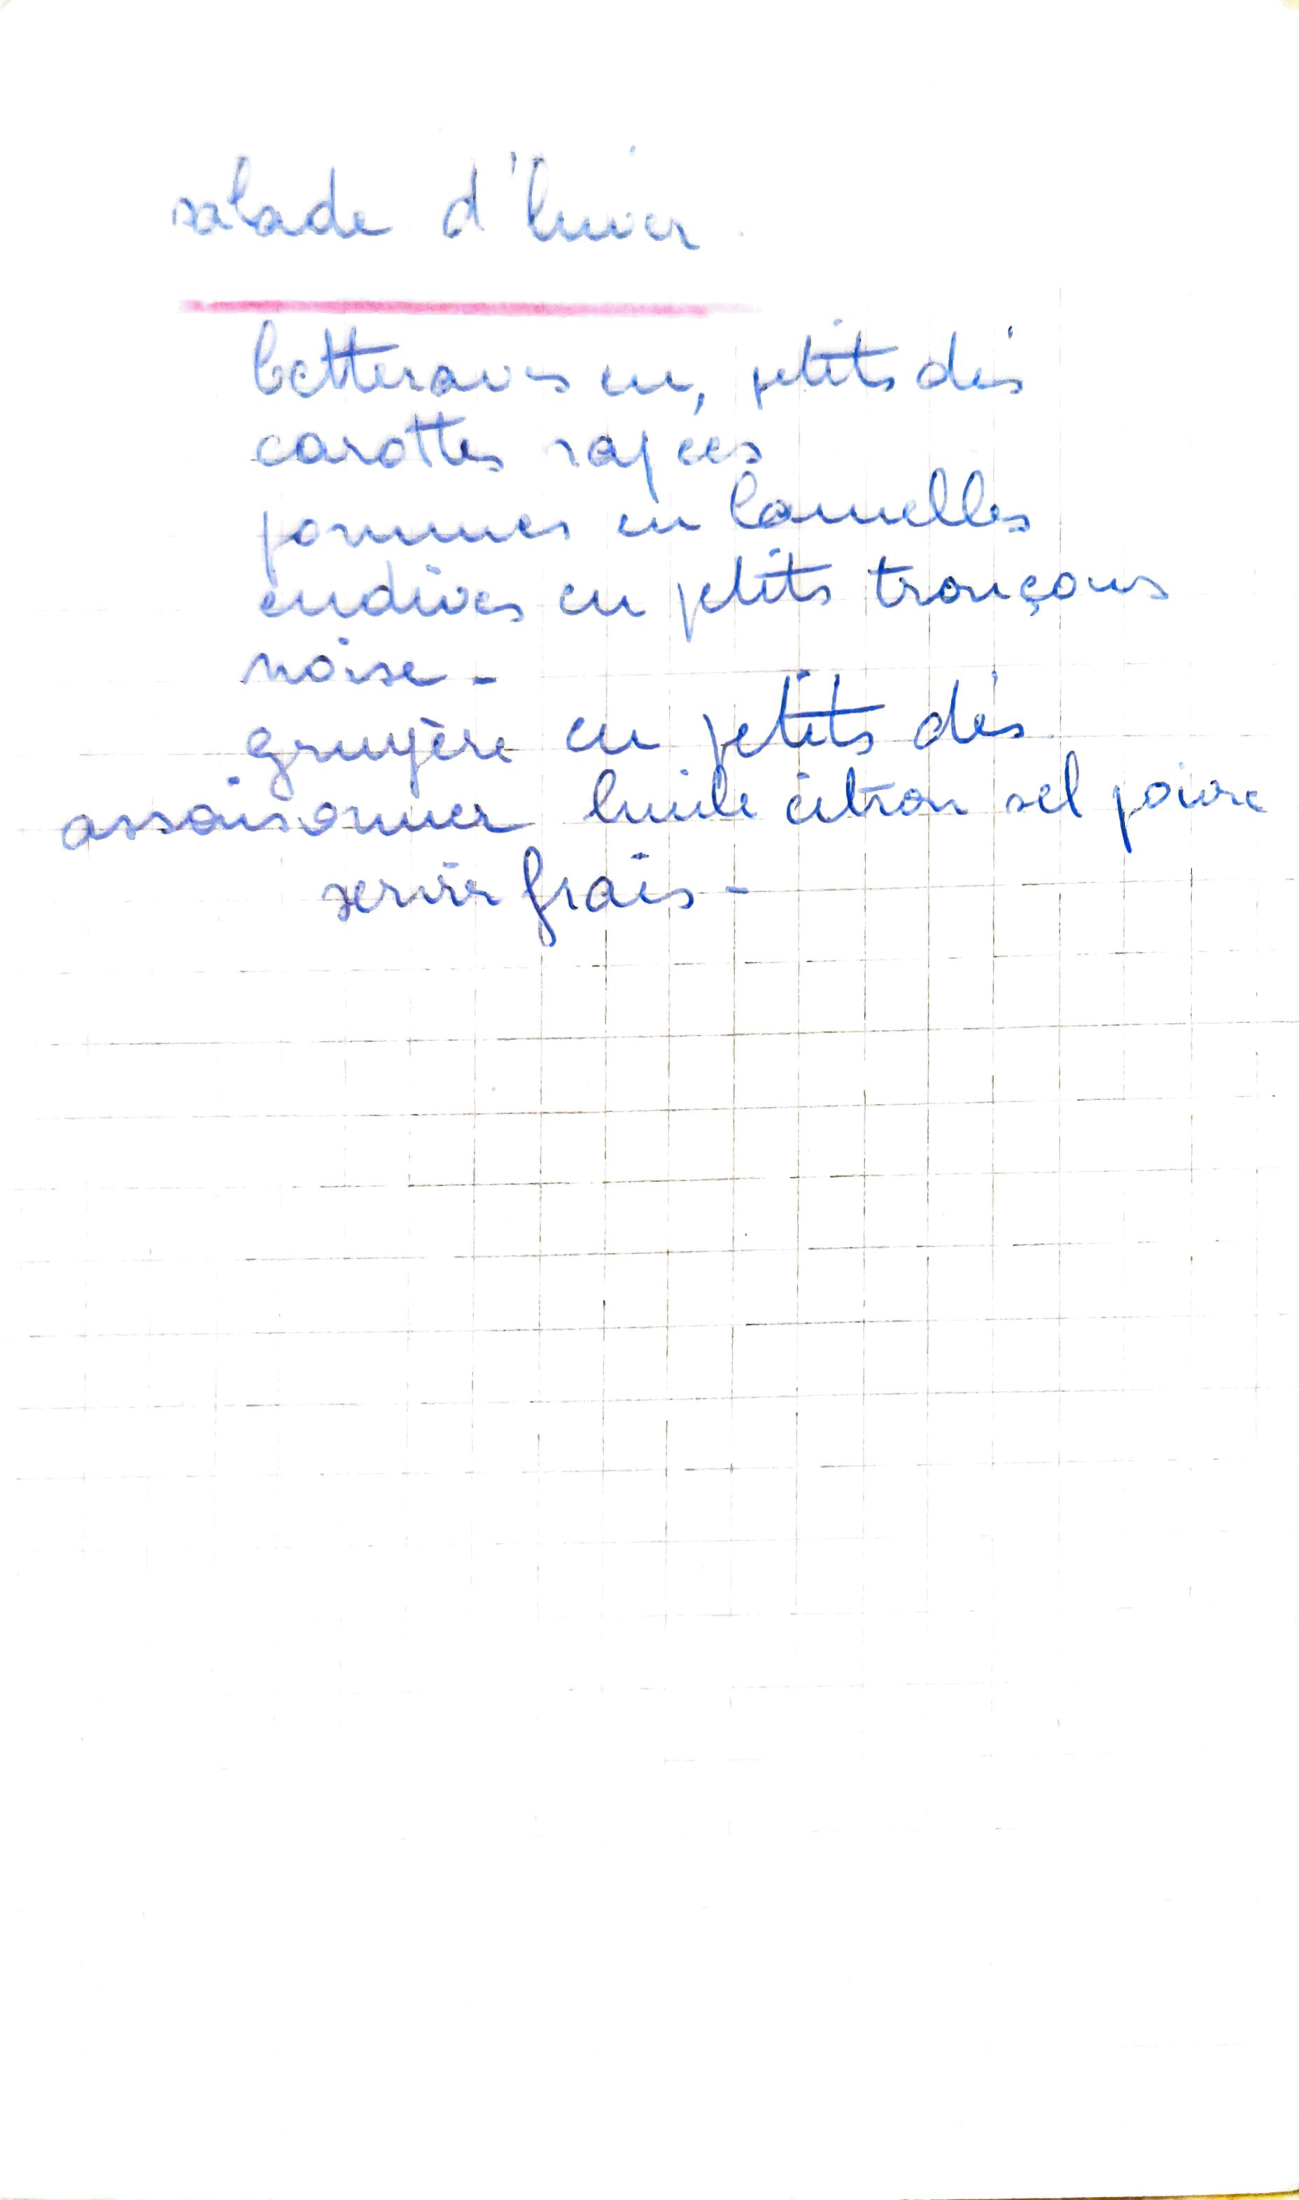 salade d'hiver.
betteraves en, petits dés
carottes rapées
pommes en lamelles
endives en petits tronçons
noise -
gruyère en petits dés.
assaisonner huile citron sel poivre
servir frais -